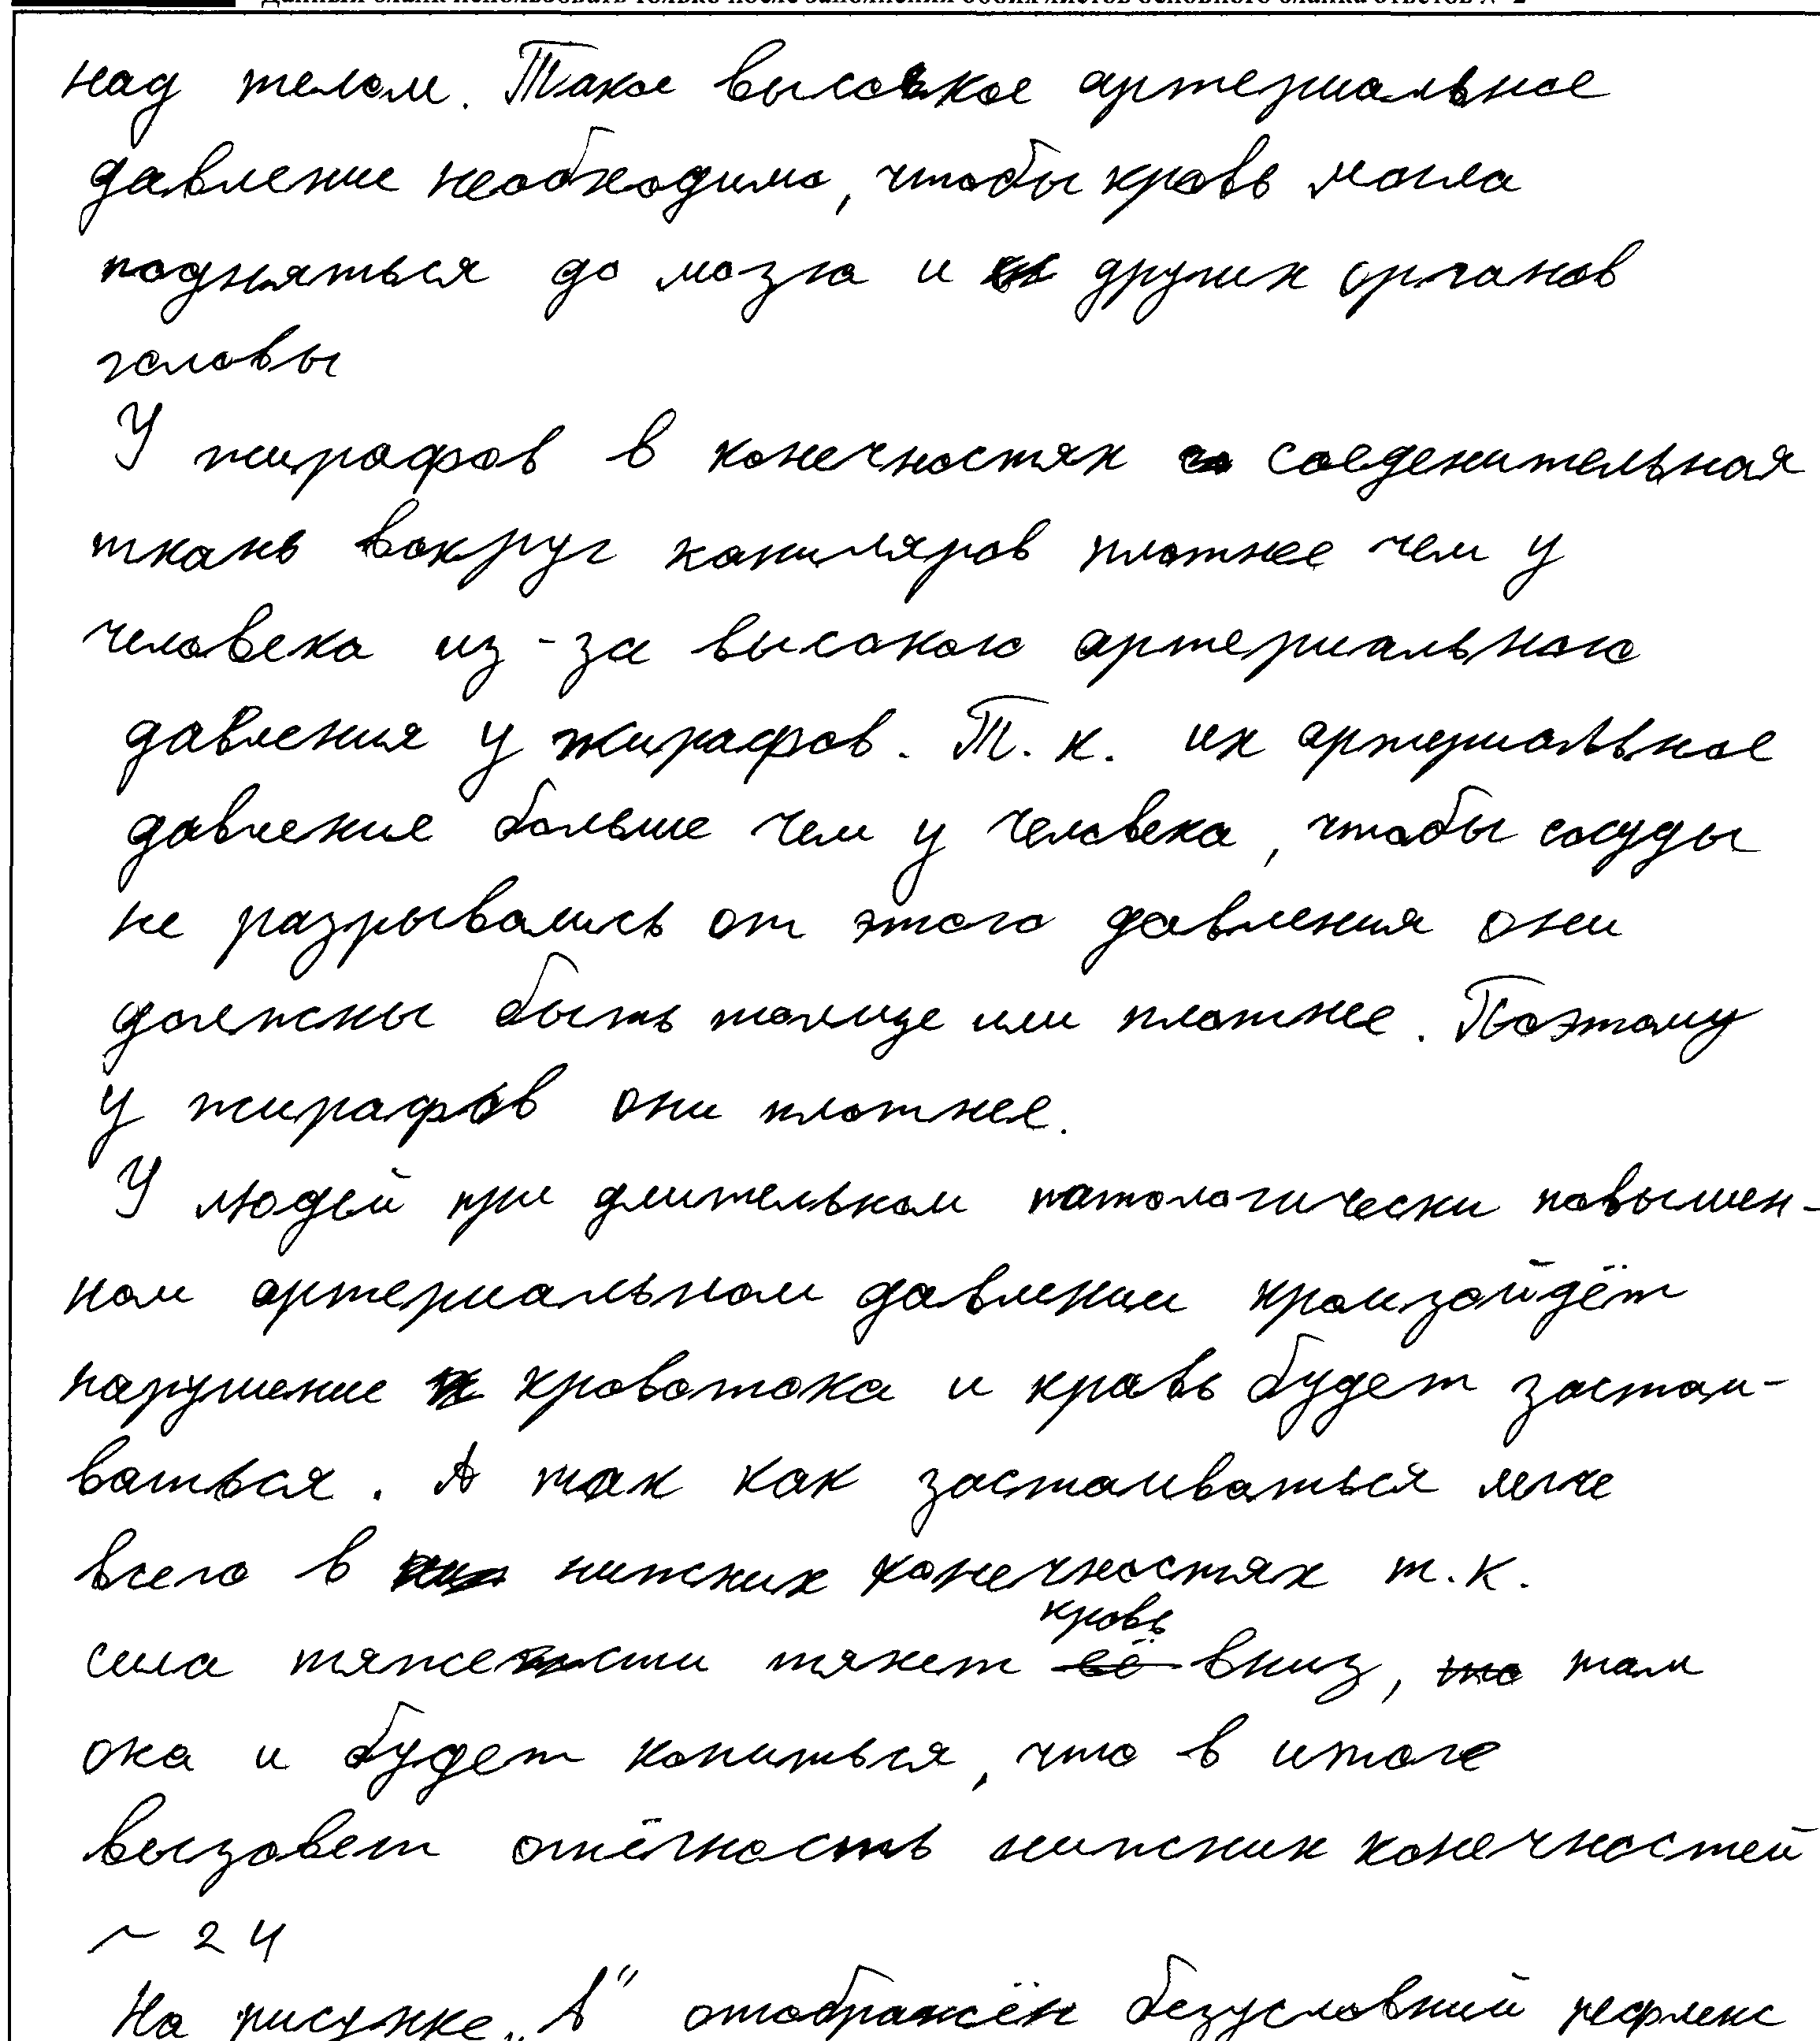 Данный бланк использовать только после заполнения обоих листов основного бланка ответов № 2
над телом. Такое высокое артериальное
давление необходимо, чтобы кровь могла
подняться до мозга и других органов
головы
У жирафов в конечностях соеденительная
ткань вокруг капиляров плотнее чем у
человека из-за высокого артериального
давления у жирафов. Т.к. их артериальное
давление больше чем у человека, чтобы сосуды
не разрывались от этого давления они
должны быть толще или плотнее. Поэтому
у жирафов они плотнее.
У людей при длительном патологически повышен-
ном артериальном давлении произойдёт
нарушение кровотока и кровь будет застаи-
ваться. А так как застаиваться легче
всего в нижних конечностях т.к.
сила тяжести тянет кровь вниз, там
она и будет копиться, что в итоге
вызовет отёчность нижних конечностей
~ 24
На рисунке „А" отображён безусловный рефлекс